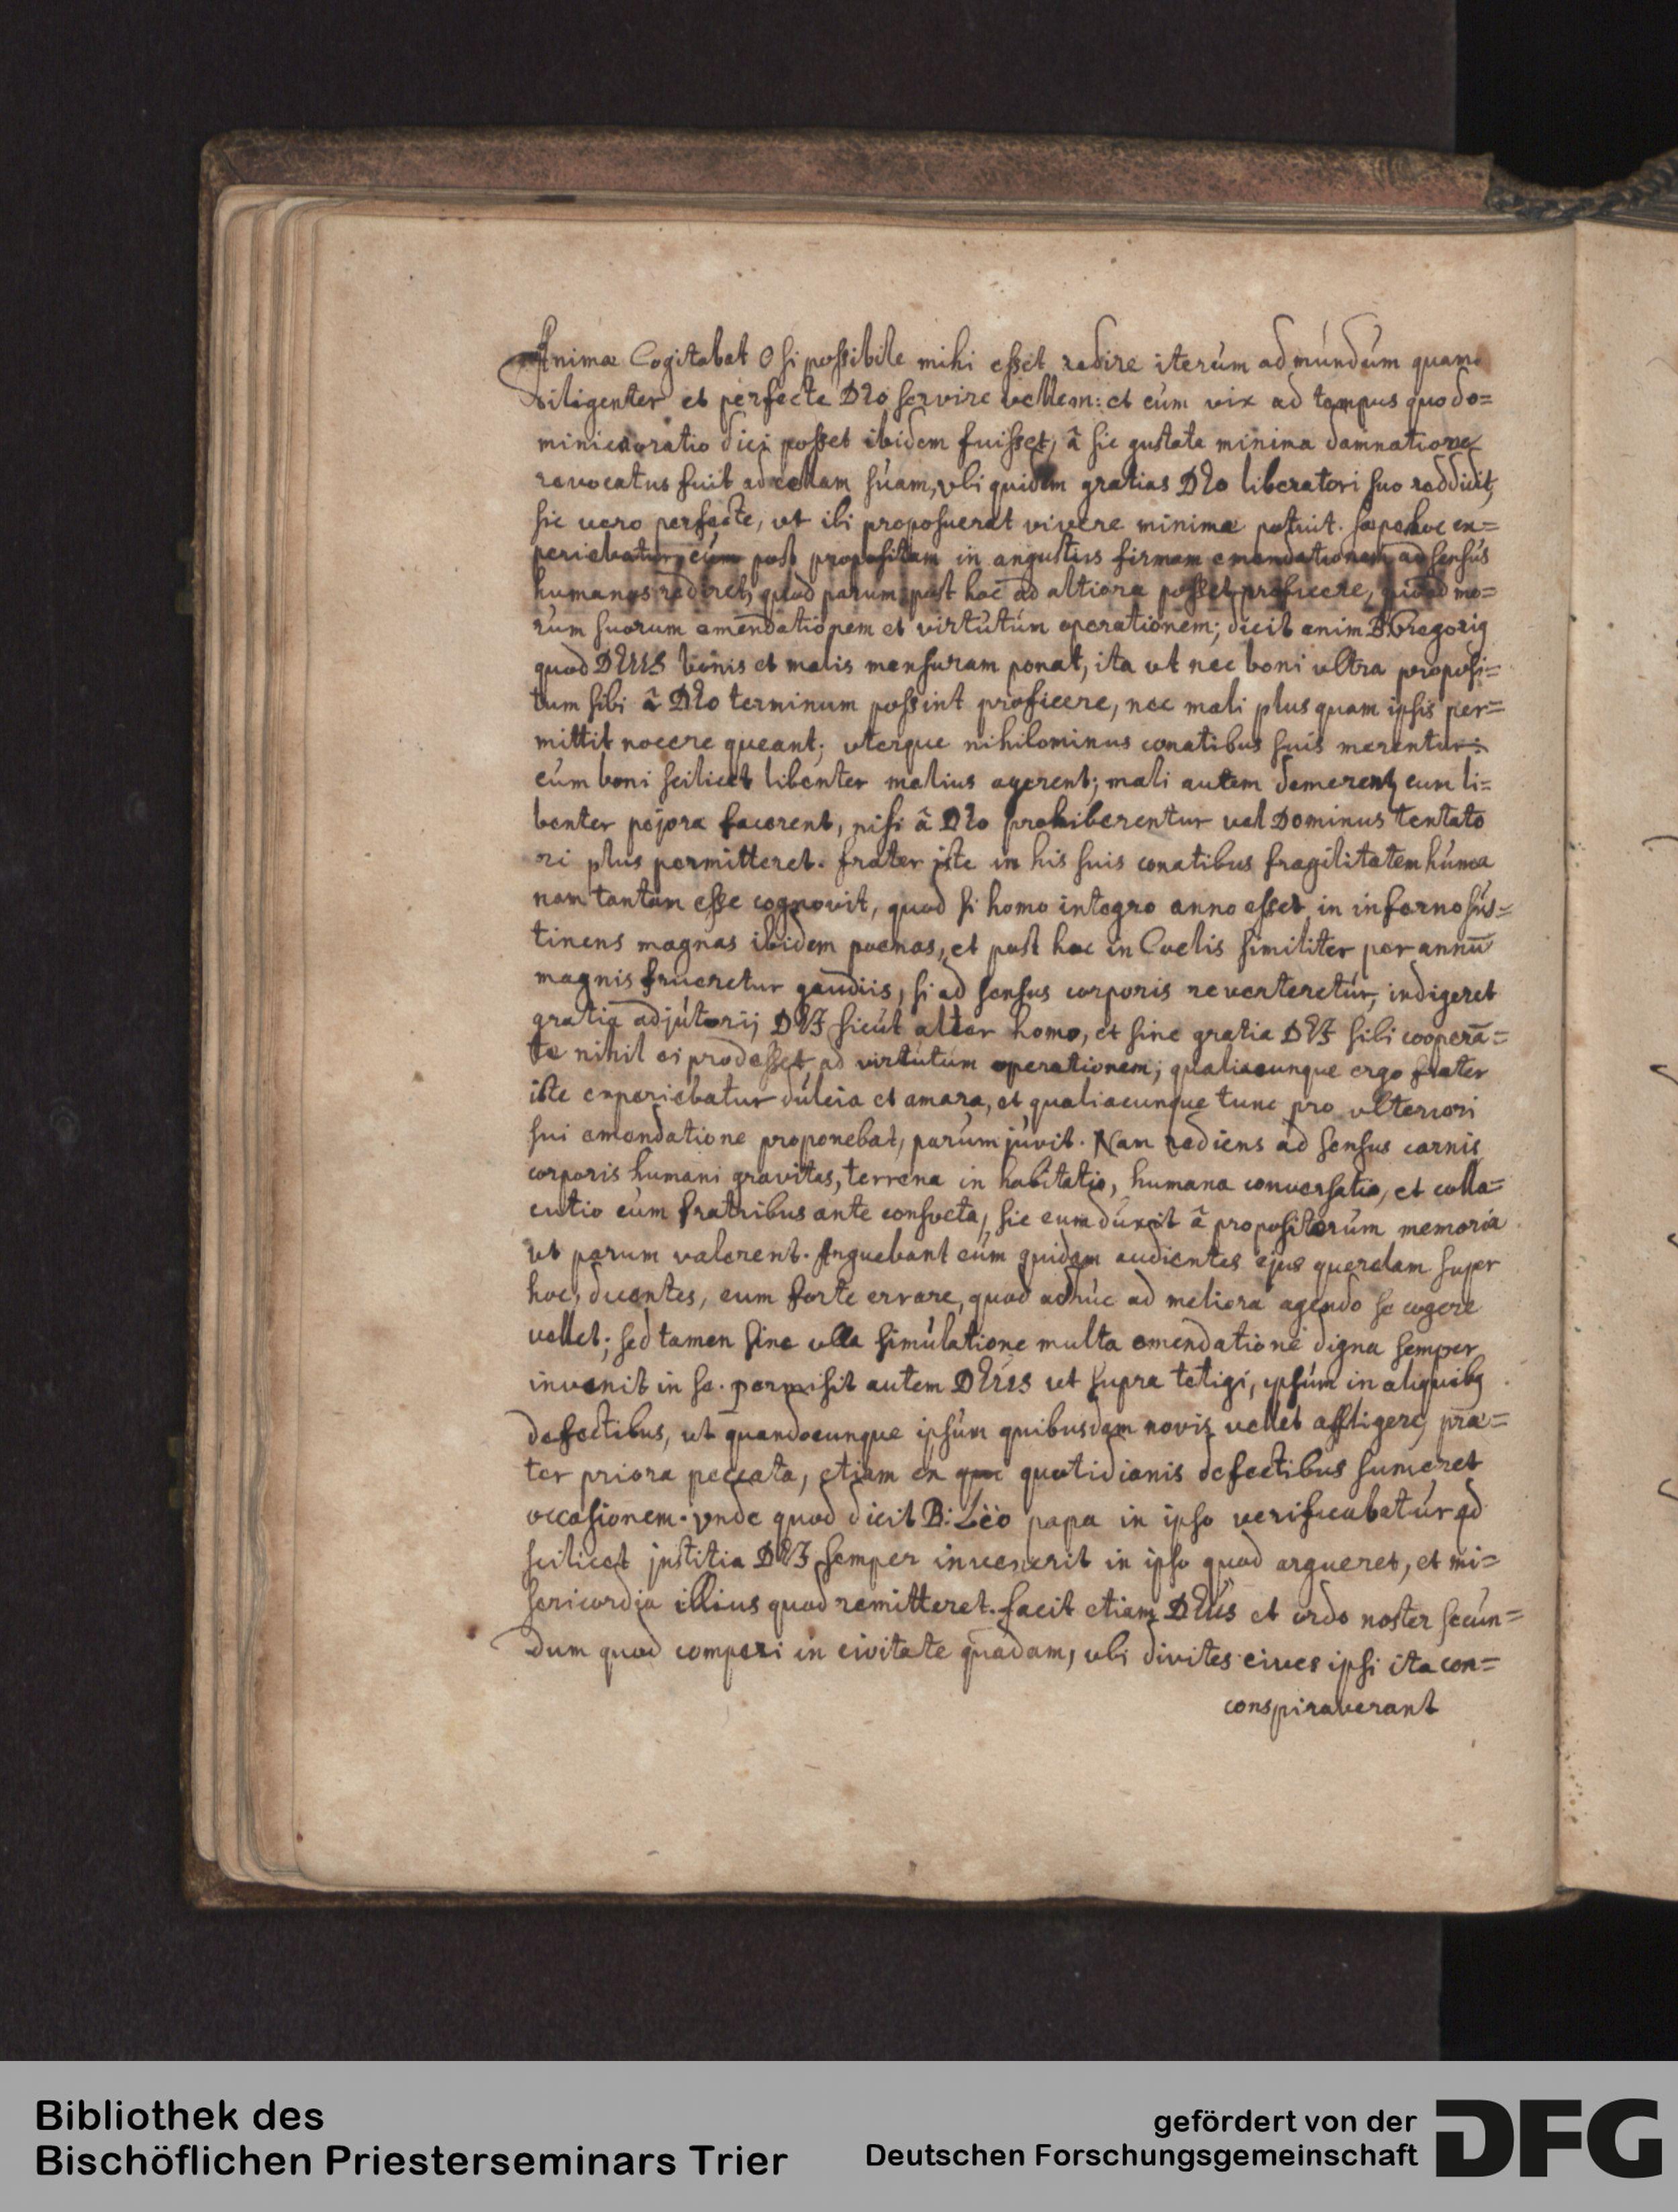 Animæ Cogitabat O si possibile mihi esset redire iterúm ad múndúm quam
diligenter et perfecte DEo servire vellem: et cúm vix ad tempus quo do=
minica oratio dici posset ibidem fuisset, â sic gustata minima damnatione
revocatus fuit ad cellam súam, vbi quidem gratias DEo liberatori suo reddidit,
sic vero perfecte, ut ibi proposuerat vivere minime potuit. sæpe hoc ex=
periebatur, cúm post propositam in angustiis firmam emendationem ad sensús
humanos rediret, quod parum post hac ad altiora posset proficere, quoad mo=
rúm suorum emendationem et virtútúm operationem; dicit enim B: Gregorig
quod DEUS bonis et malis mensuram ponat, ita ut nec boni ultra proposi=
tum sibi â DEo terminum possint proficere, nec mali plus quam ipsis per=
mittit nocere queant; uterque nihilominus conatibus suis merentur:
cúm boni scilicet libenter melius agerent; mali autem demerent, cum li=
benter pejora facerent, nisi â DEo prohiberentur vel Dominus tentato
ri plus permitteret. frater iste in his suis conatibus fragilitatem húma
nam tantam esse cognovit, quod si homo integro anno esset in inferno sús=
tinens magnas ibidem poenas, et post hac in Coelis similiter per annū
magnis frueretur gaudiis, si ad sensus corporis reverteretúr, indigeret
gratia adjútorij DEI sicút alter homo, et sine gratia DEI sibi cooperā=
te nihil ei prodesset ad virtútúm operationem; qualiacunque ergo frater
iste experiebatur dúlcia et amara, et qualiacunque tunc pro ulteriori
sui emendatione proponebat, parúm júvit. Nam rediens ad sensus carnis
corporis humani gravitas, terrena in habitatio, humana conversatio, et collo=
cutio cúm fratribus ante consveta, sic eum dúxit â propositorúm memoria
ut parum valerent. Arguebant eúm quidem audientes ejus querelam super
hoc, dicentes, eum forte errare, quod adhúc ad meliora agendo se cogere
vellet; sed tamen sine ulla simúlatione multa emendatione digna semper
invenit in se. permisit autem DEUS ut supra tetigi, ipsúm in aliquibg
defectibus, ut quandocunque ipsúm quibusdam novis vellet affligere, præ=
ter priora peccata, etiam ex quotidianis defectibus sumeret
occasionem. vnde quod dicit B: Lëo papa in ipso verificabatúr qd
scilicet justitia DEI semper invenerit in ipso quod argueret, et mi=
sericordia illius quod remitteret. facit etiam DEUs et ordo noster secún=
dum quod comperi in civitate quadam, ubi divites cives ipsi ita con=
conspiraverant
Bibliothek des
Bischöflichen Priesterseminars Trier
gefördert von der
Deutschen Forschungsgemeinschaft
DFG